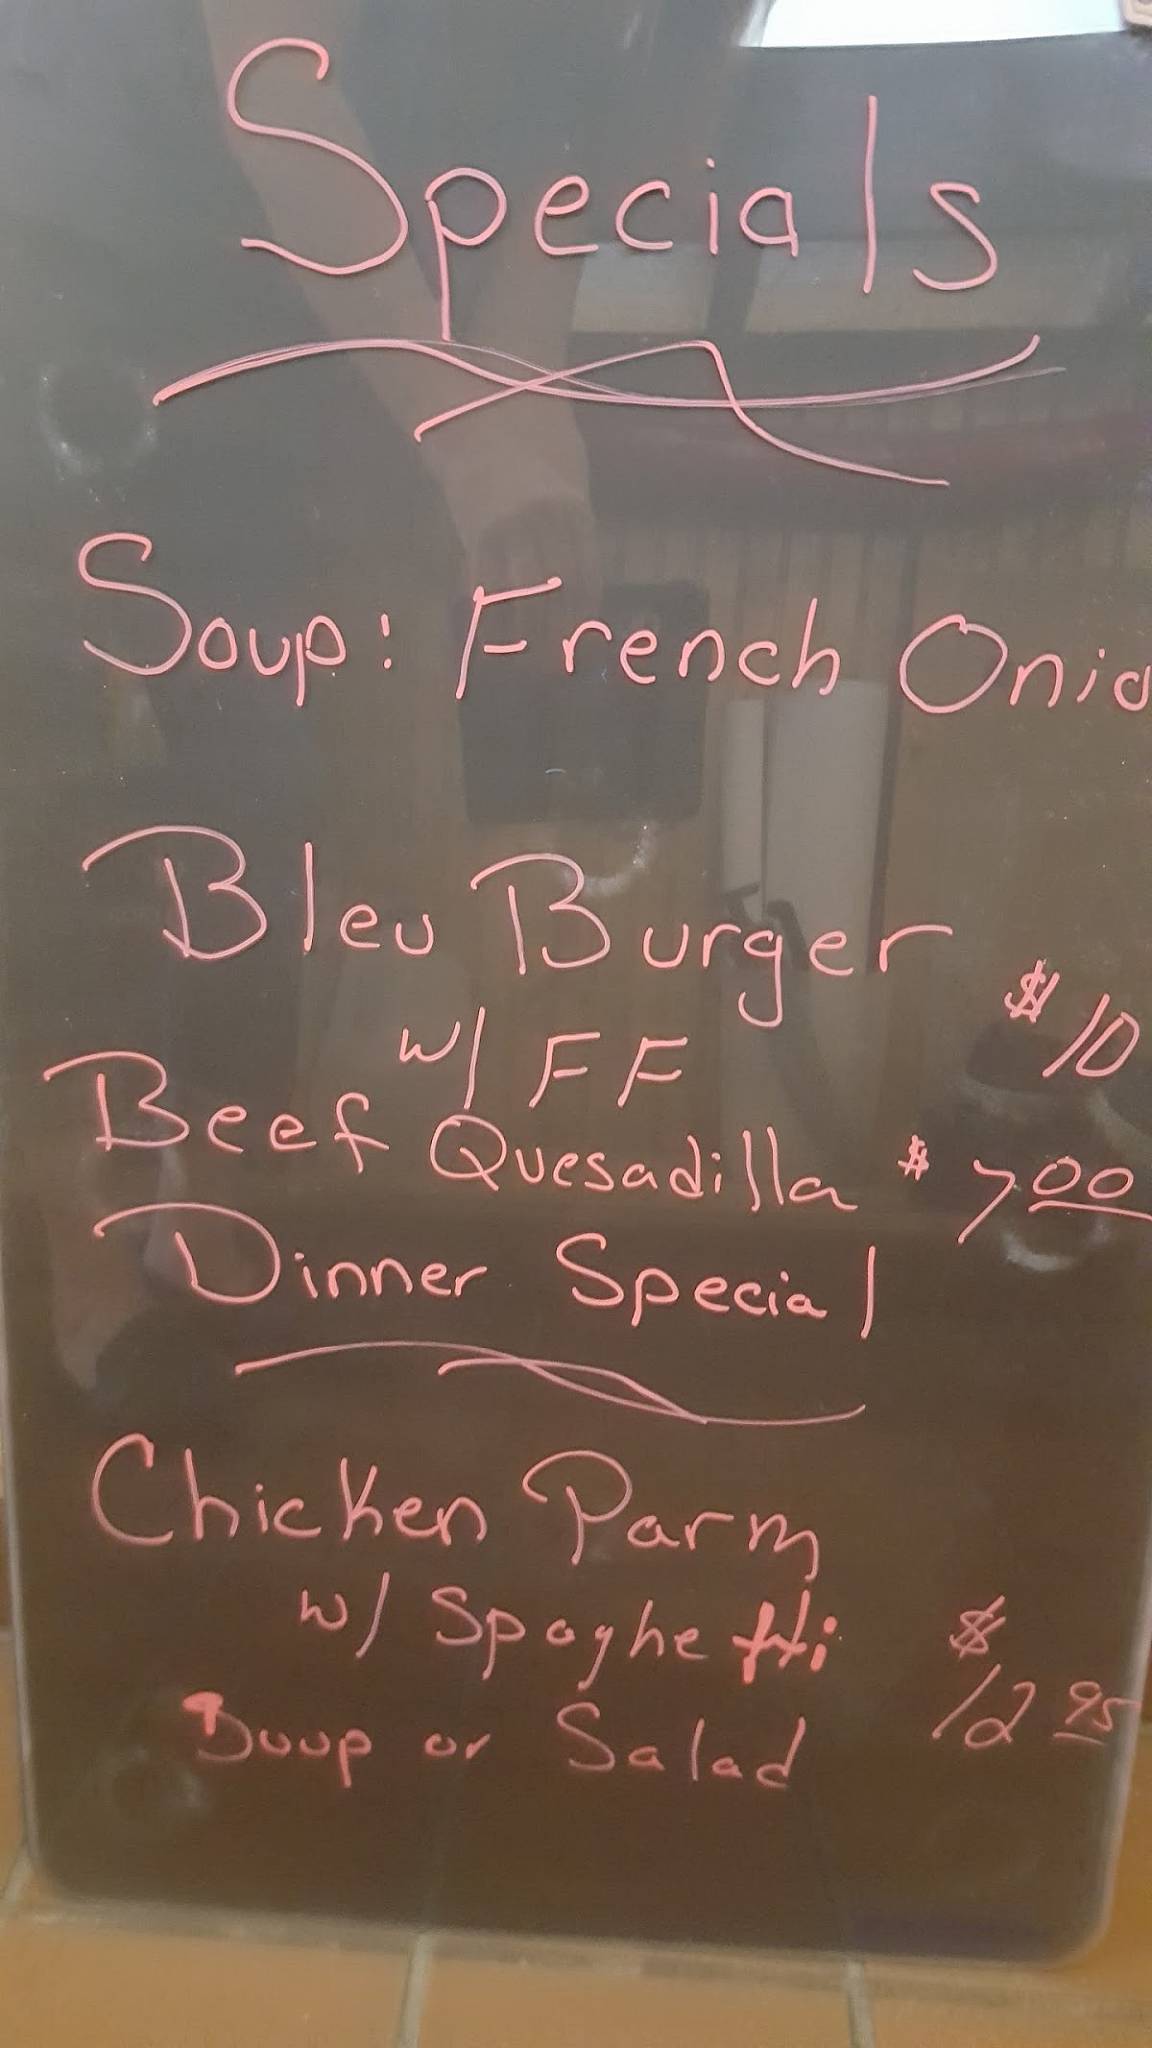 Specials
Soup: French Onio
Bleu Burger
w/ FF $10
Beef Quesadilla $7.00
Dinner Special
Chicken Parm
w/ Spaghetti $12.95
Soup or Salad